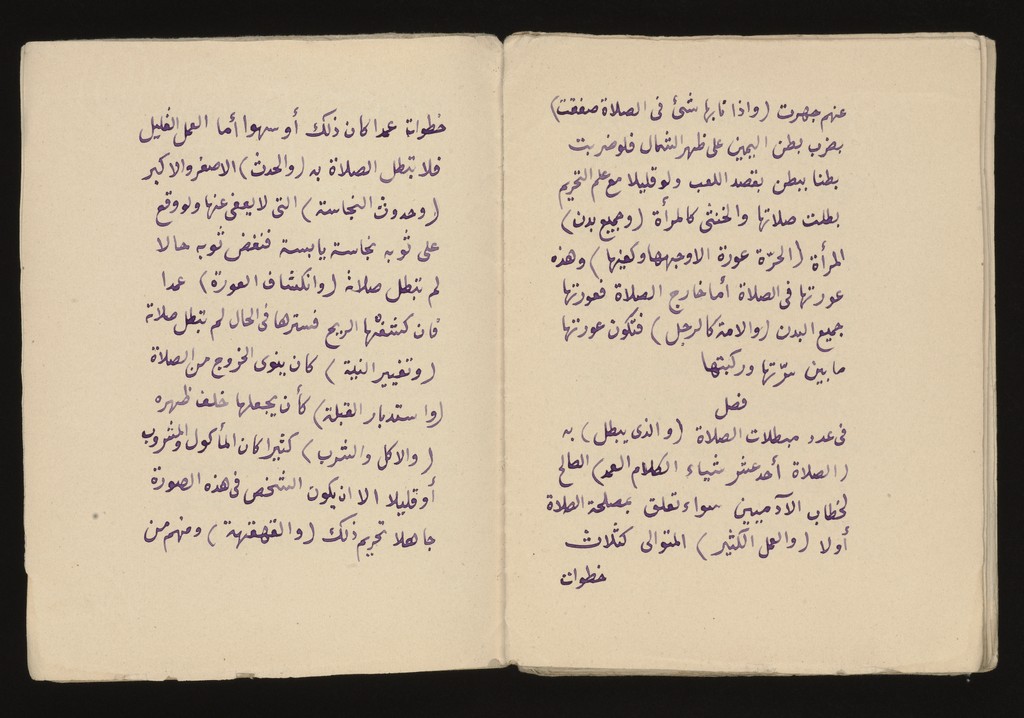 عنهم جهرت (واذا نابها شئ فى الصلاة صفقت)
بضرب بطن اليمين على ظهر الشمال فلو ضربت
بطنا ببطن بقصد اللعب ولو قليلا مع علم التحريم
بطلت صلاتها والخنثى كالمرأة (وجميع بدن)
المرأة (الحرّة عورة الا وجهها وكفيها) وهذه
عورتها فى الصلاة أما خارج الصلاة فعورتها
جميع البدن (والامة كالرجل) فتكون عورتها
ما بين سرّتها وركبتها
فصل
فى عدد مبطلات الصلاة (والذى يبطل) به
(الصلاة أحد عشر شياء الكلام العمد) الصالح
لخطاب الآدميين سواء تعلق بمصلحة الصلاة
أولا (والعمل الكثير) المتوالى كثلاث
خطوات
خطوات عمدا كان ذلك أو سهوا أما العمل القليل
فلا تبطل الصلاة به (والحدث) الاصغر والاكبر
(وحدوث النجاسة) التى لا يعفى عنها ولو وقع
على ثوبه نجاسة يابسة فنفض ثوبه حالا
لم تبطل صلاته (وانكشاف العورة) عمدا
فان كشفتها الريح فسترها فى الحال لم تبطل صلاته
(وتغيير النية) كان ينوى الخروج من الصلاة
(واستدبار القبلة) كأن يجعلها خلف ظهره
(والاكل والشرب) كثيرا كان المأكول والمشروب
أو قليلا الا ان يكون الشخص فى هذه الصورة
جاهلا تحريم ذلك (والقهقهة) ومنهم من